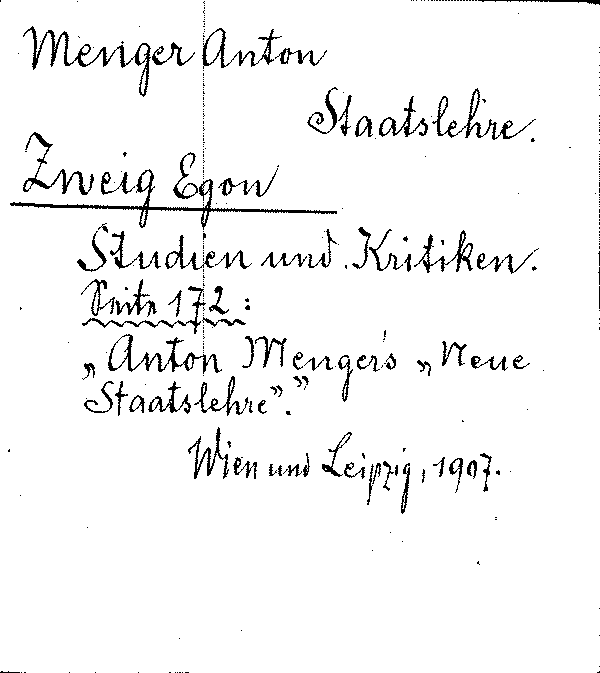 Menger Anton
Staatslehre.
Zweig Egon
Studien und Kritiken.
Seite 172:
„Anton Menger's „Neue
Staatslehre”.”
Wien und Leipzig, 1907.